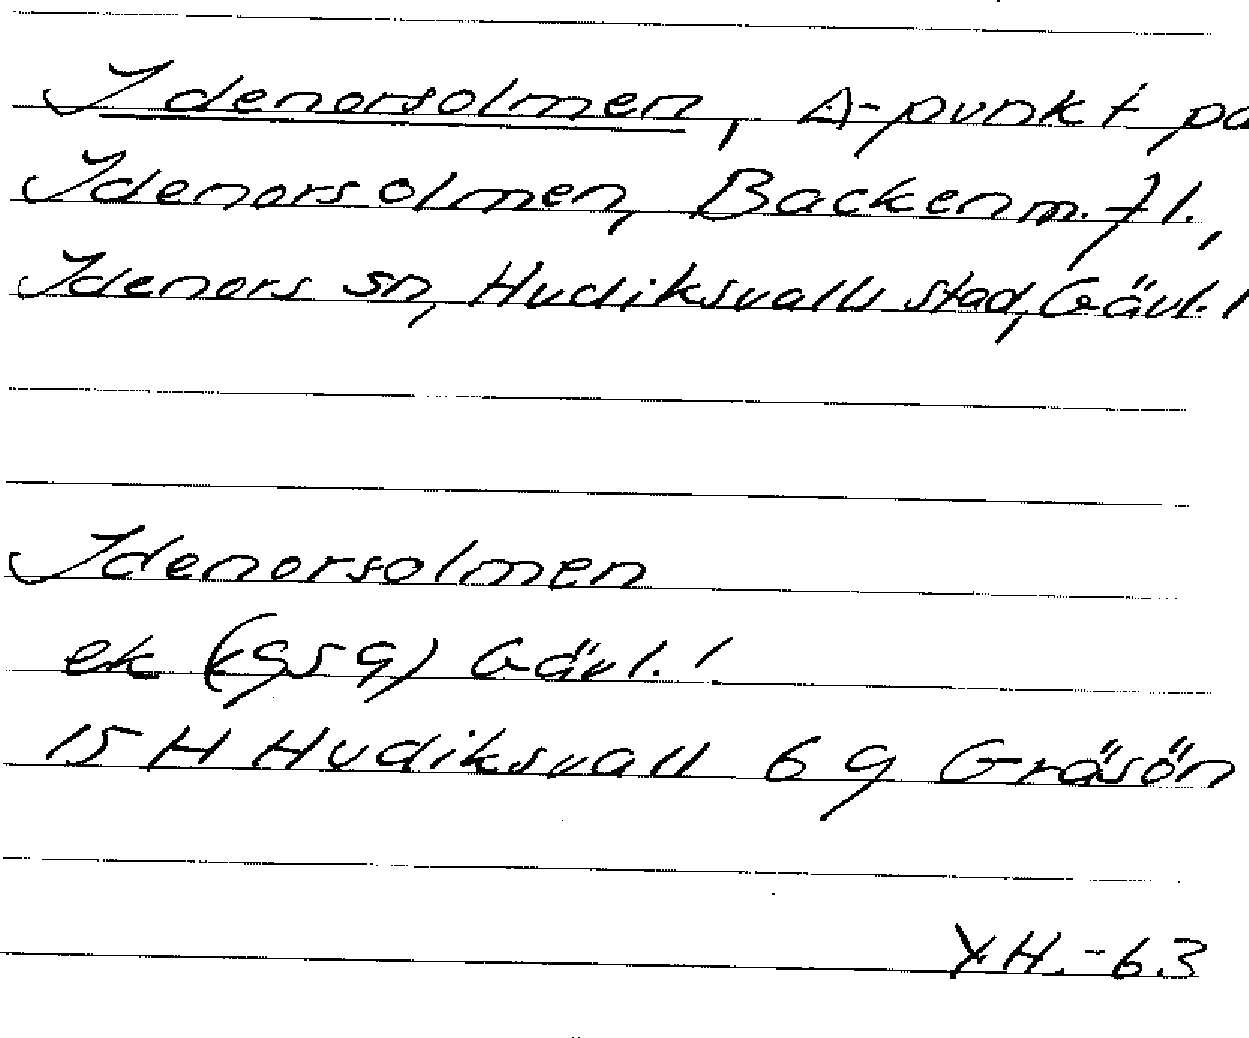 Idenorsolmen, A-punkt på
Idenorsolmen, Backen m. fl.,
Idenors sn, Hudiksvalls stad, Gävl. l
Idenorsolmen
ek (959) Gävl. l
15 H Hudiksvall 6 g Gräsön
Y.H. -63